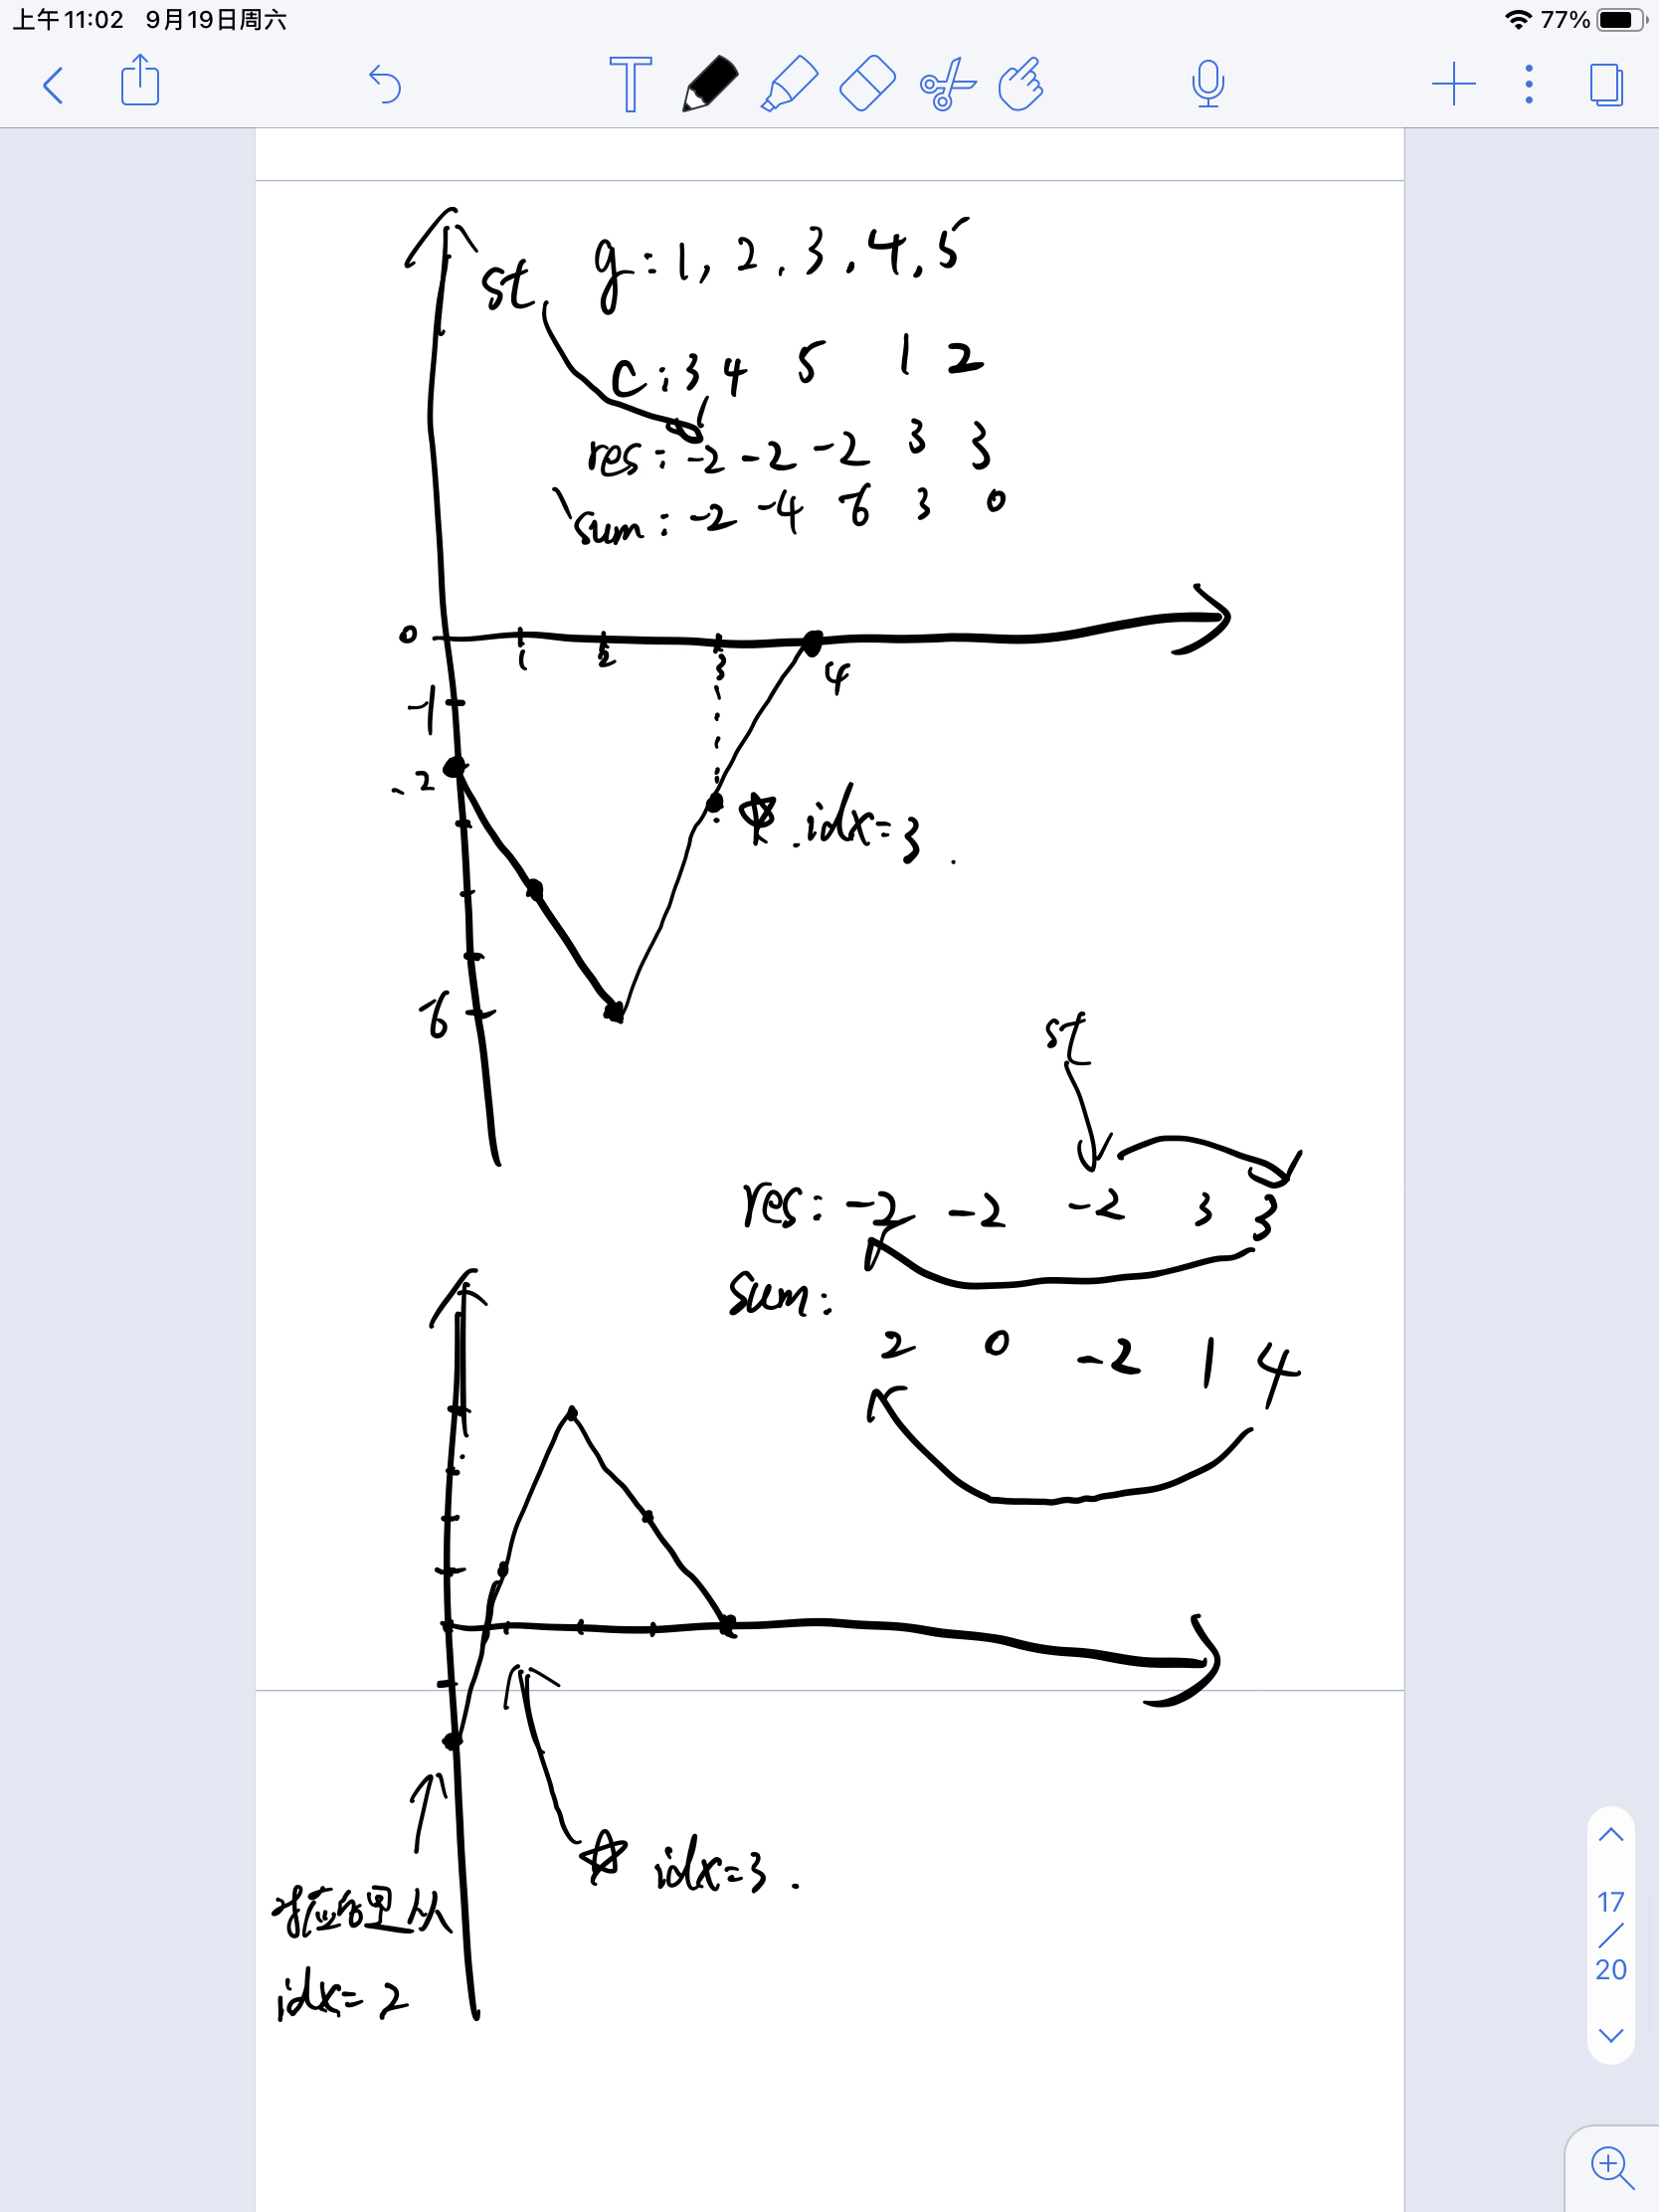 上午11:02 9月19日周六
77%
T
st
g: 1, 2, 3, 4, 5
c: 3 4 5 1 2
res: -2 -2 -2 3 3
sum: -2 -4 -6 3 0
0
1 2 3 4
-1
-2
idx=3.
-6
st
res: -2 -2 -2 3 3
sum:
2 0 -2 1 4
idx=3.
idx=2
17
/
20